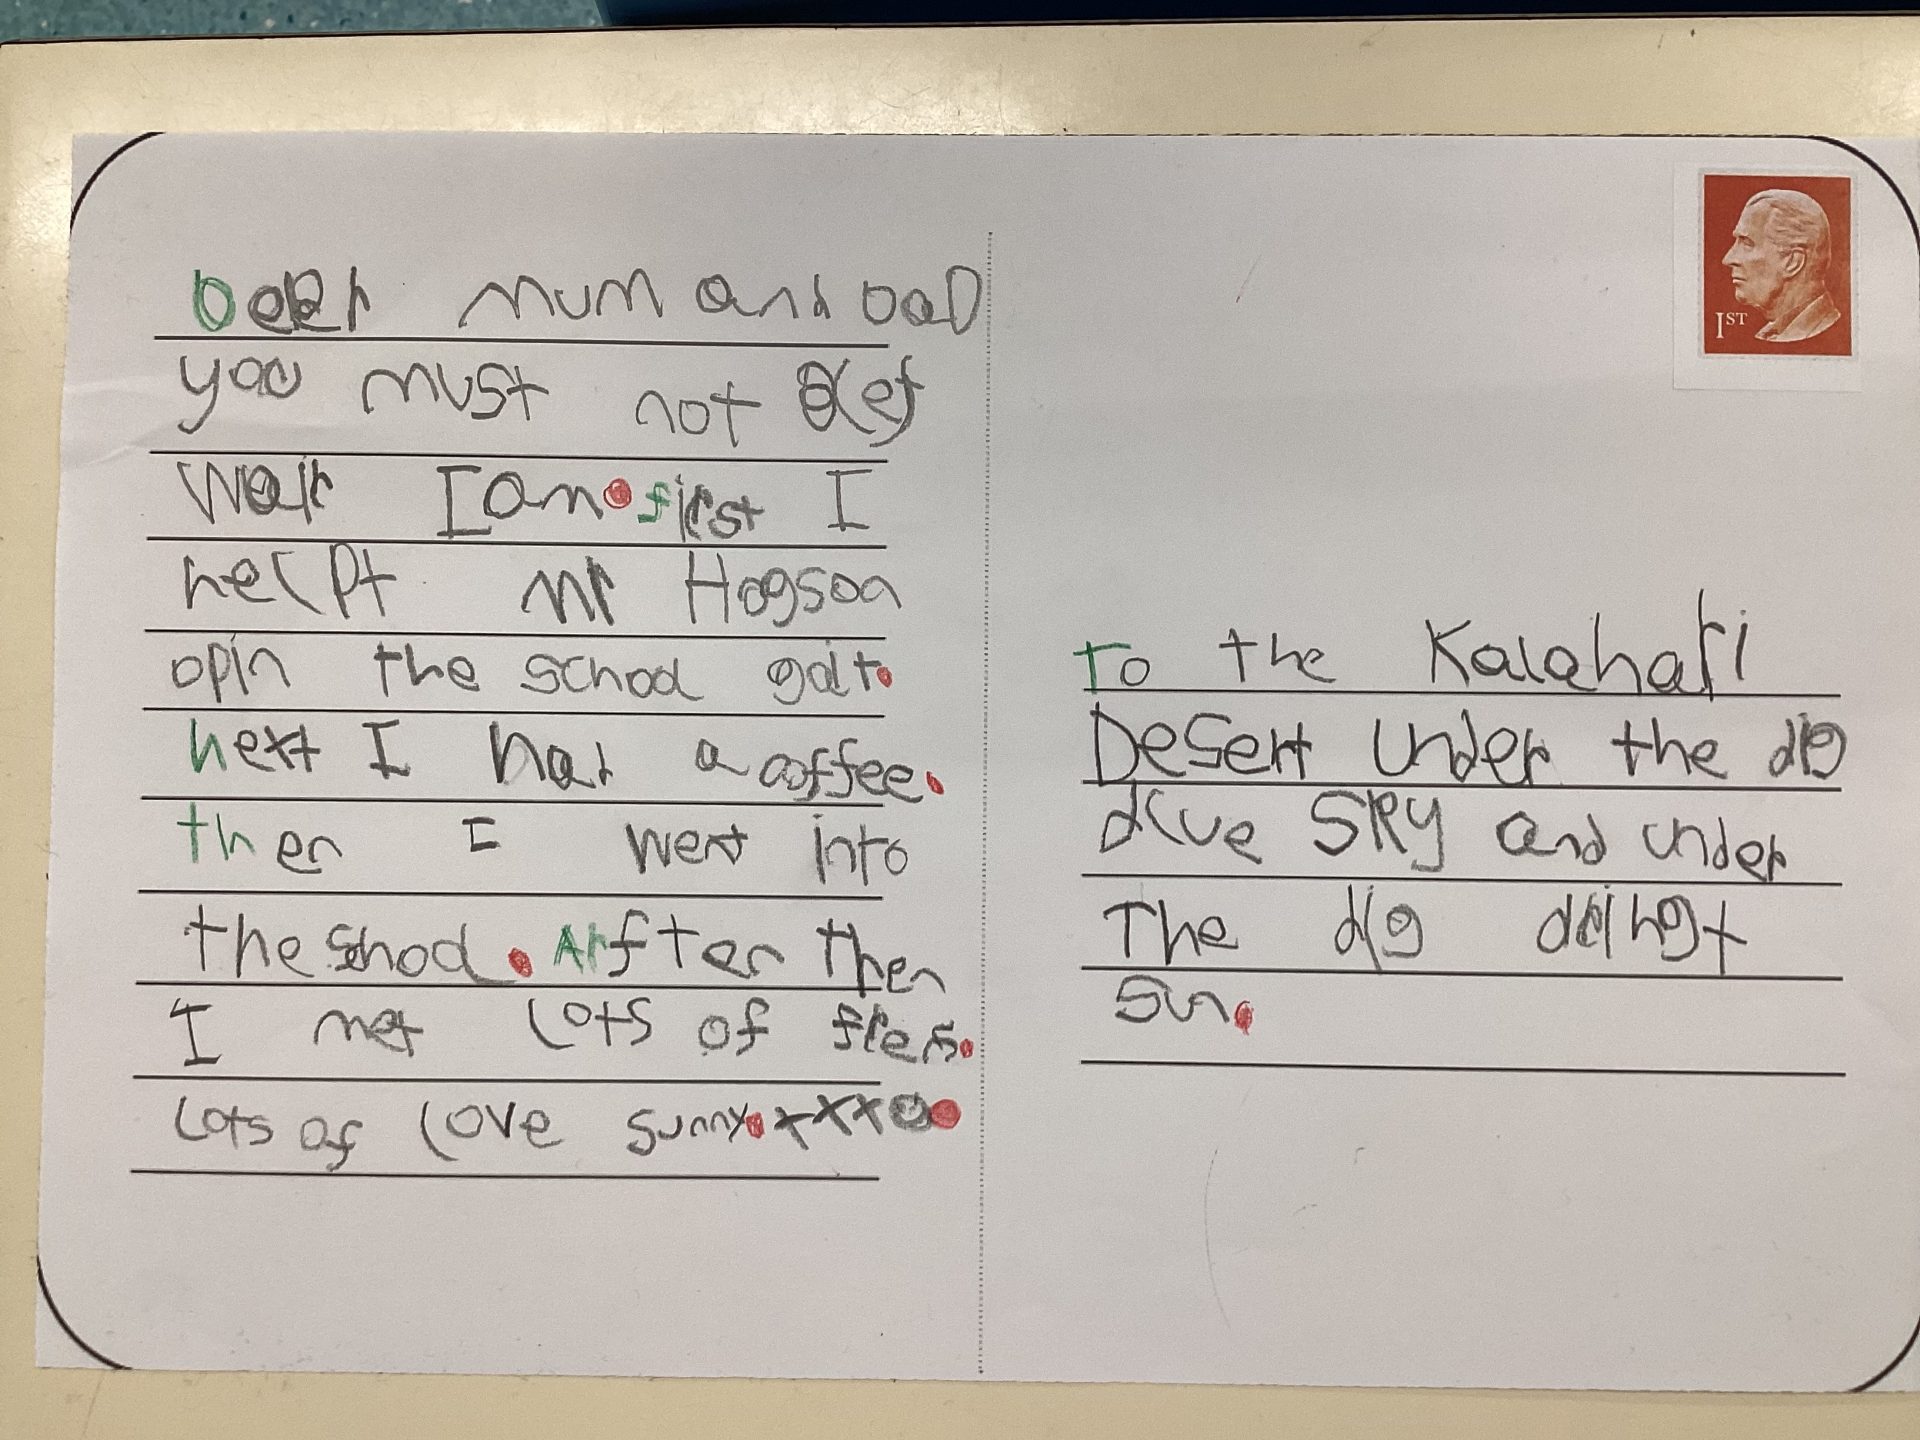 Deer mum and DaD
you must not dlef
wair I am. first I
helpt Mr Hogson
opin the school gait.
next I had a coffee.
then I went into
the shool. Arfter then
I met Lots of frens.
Lots of love sunny. xxxo
1ST
To the Kalahari
Desert under the dig
dlue SKy and under
The dig dringt
sun.